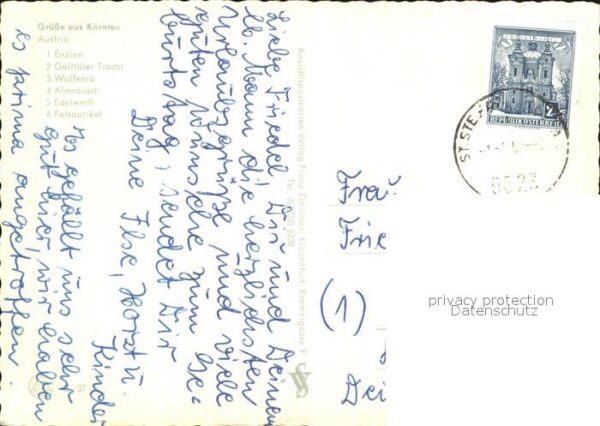 Grüße aus Kärnten
Austria
1 Enzian
2 Gailtaler Tracht
3 Wulfenia
4 Almrausch
5 Edelweiß
6 Felsaurikel
Liebe Friedel Dir und Deinem
lb. Mann die herzlichsten
Urlaubsgrüße und viele
guten Wünsche zum Ge-
burtstag, sendet Dir
Deine Ilse, Horst u.
Kinder
es gefällt uns sehr
gut hier, wir haben
es prima angetroffen.
Ansichtspostkarten-Verlag Franz Schilcher, Klagenfurt, Kromergasse 9
Tel.
37
REPUBLIK ÖSTERREICH
ST. STE
Frau
Frie
(1)
Dei
privacy protection
Datenschutz